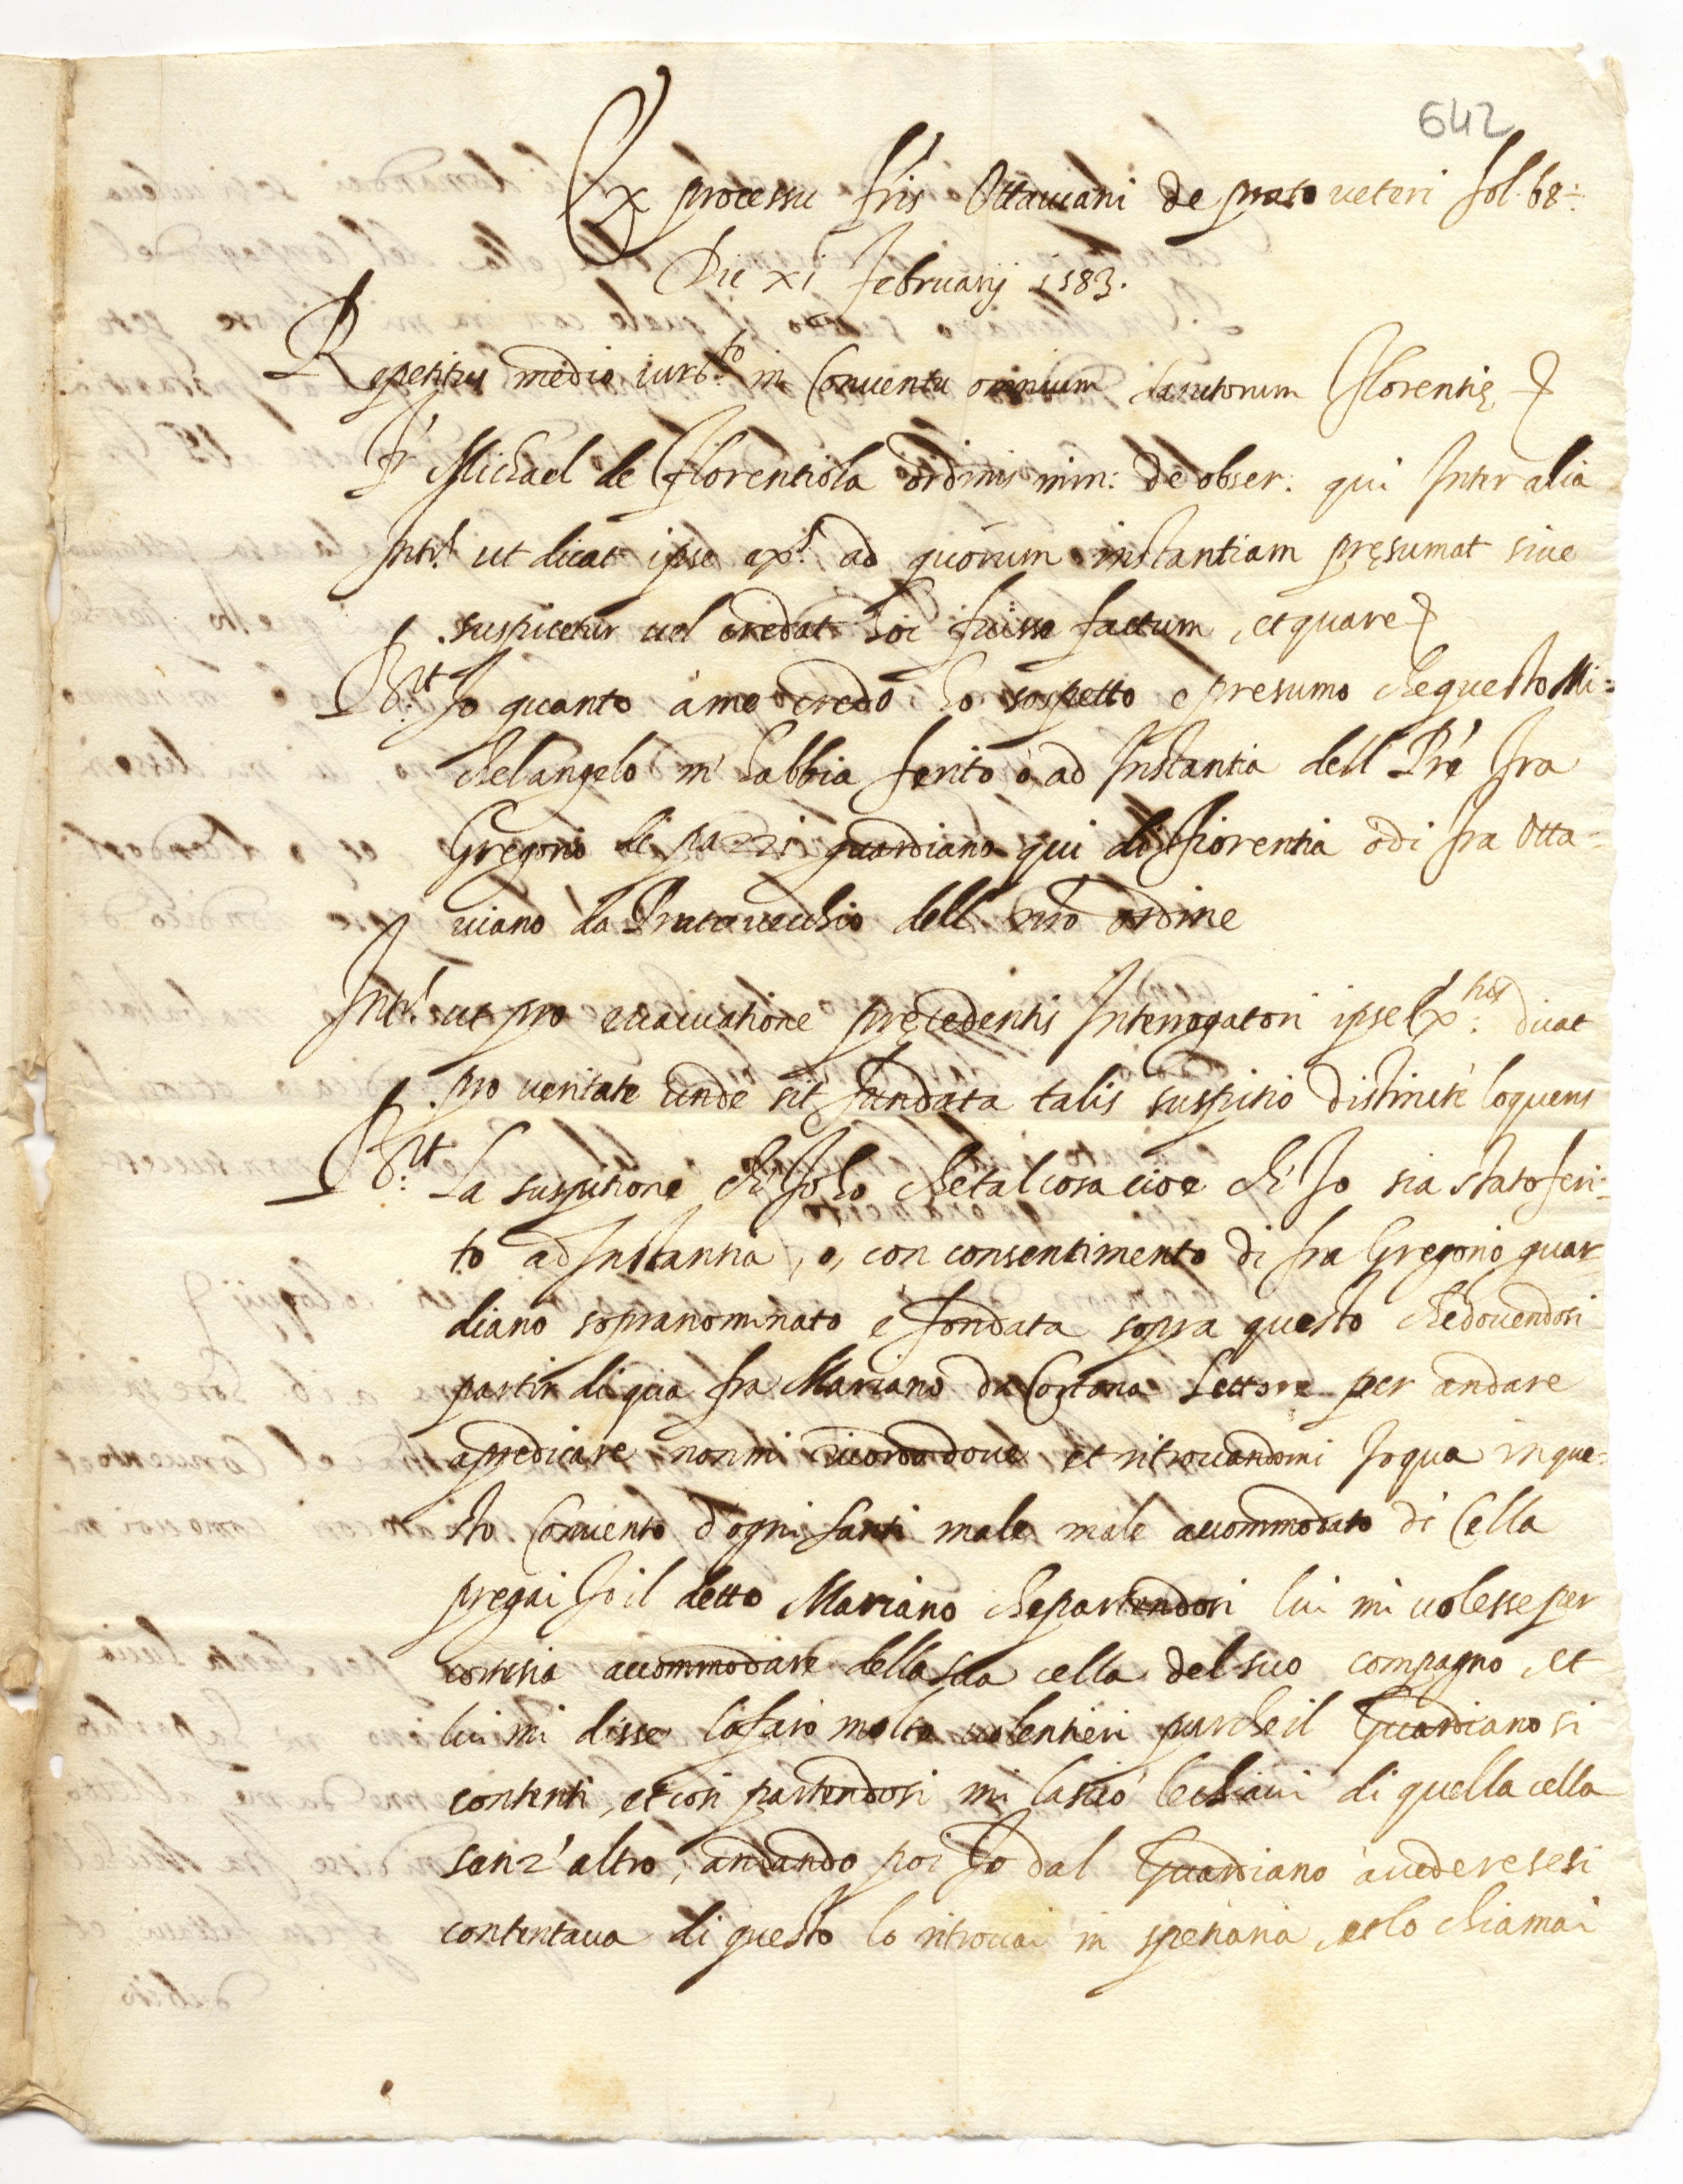 642
Ex processu fr̃is Ottauiani de prato ueteri fol. 68:
Die xi februarij 1583.
Repetitus medio iur.to in Conuentu omnium sanctorum Florentię
fr' Michael de Florentiola ordinis min: de obser: qui Inter alia
Int.s ut dicat ipse ex.s ad quorum instantiam pręsumat siue
suspicetur uel credat hoc fuisse factum, et quare
R.it Io quanto à me credo ho sospetto e presumo che questo Mi=
chelangelo m' habbia ferito ò ad Instantia dell Pr̃e fra
Gregorio de pazzi guardiano qui di Fiorentia ò di fra Otta=
uiano da Pratouecchio dell nr̃o ordine
Int.s ut pro euacuatione pręcedentis Interrogatori ipse Ex: dicat
pro ueritate unde sit fundata talis suspitio distincte loquens
R.it La suspitione ch' Io ho che tal cosa cioe ch' Io sia stato feri=
to ad Instantia, o, con consentimento di fra Gregorio guar
diano sopranominato e fondata sopra questo che douendosi
partir di qua fra Mariano da Cortona Lettore per andare
a predicare non mi ricordo doue et ritrouandomi Io qua in que=
sto Conuento d'ogni santi male male accommodato di Cella
pregai Io il detto Mariano che partendosi lui mi uolesse per
cortesia accommodare della sua cella del suo compagno, et
lui mi disse lo faro molto uolentieri purche il Guardiano si
contenti, et cosi partendosi mi lasciò le chiaui di quella cella
senz' altro, andando poi Io dal Guardiano à uedere se si
contentaua di questo lo ritrouai in spetiaria, et lo chiamai